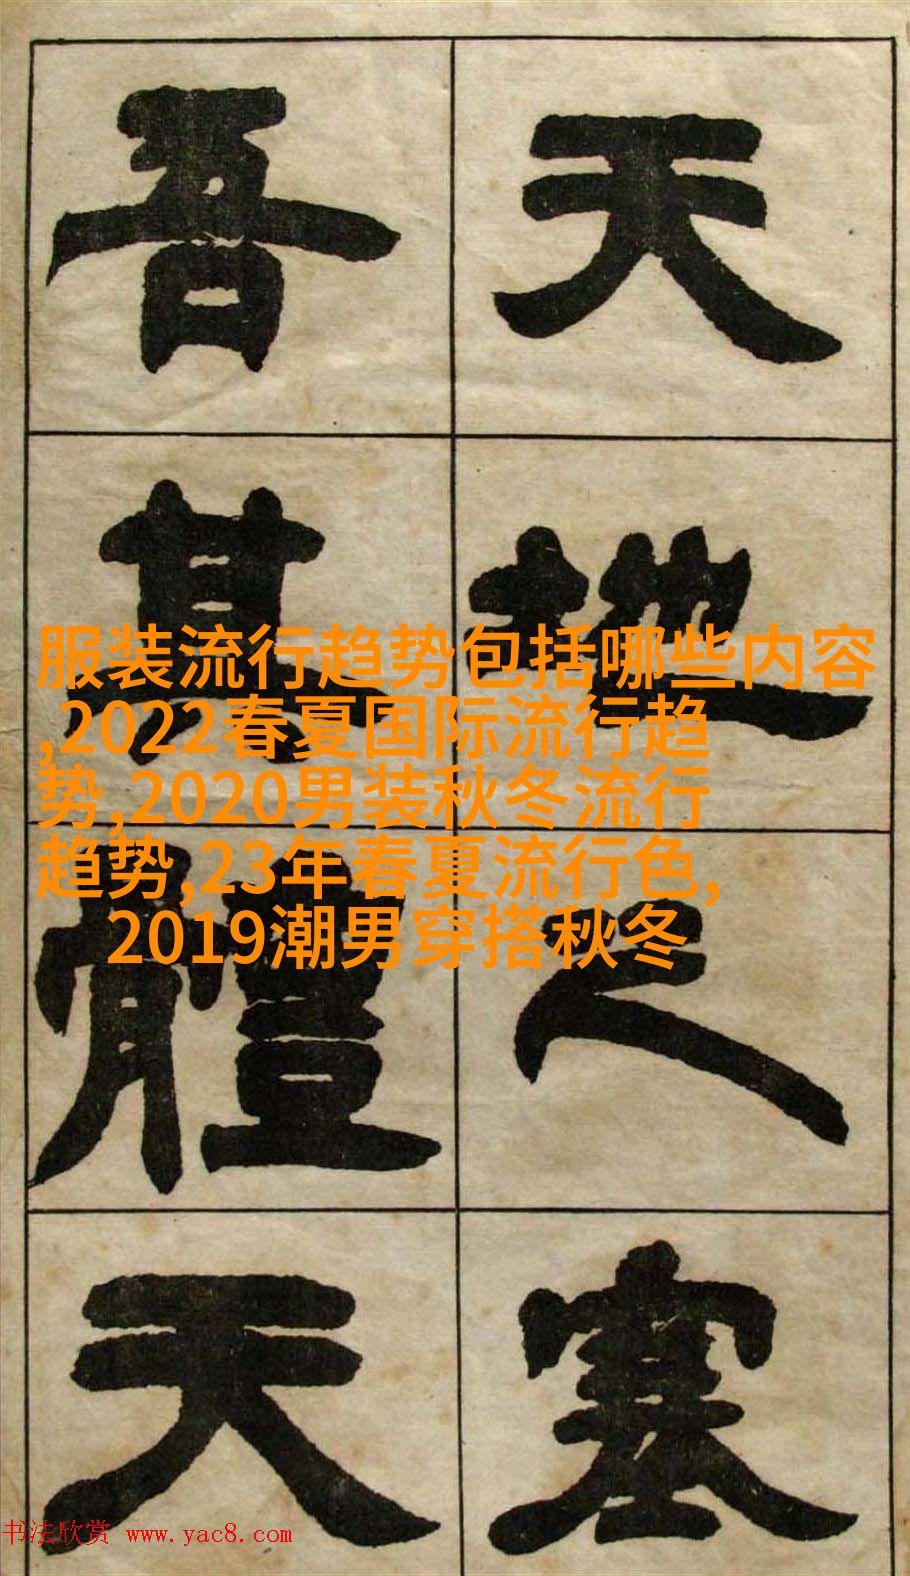 天地之塞
吾其體天
服装流行趋势包括哪些内容
,2022春夏国际流行趋
势,2020男装秋冬流行
趋势,23年春夏流行色,
2019潮男穿搭秋冬
书法欣赏 www.yac8.com